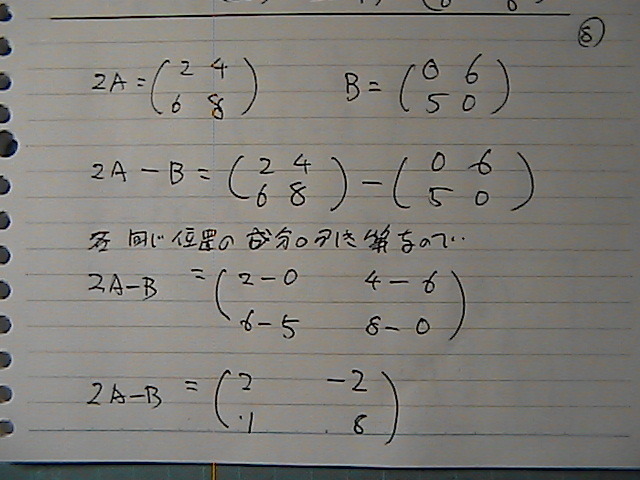 ⑧
2A = ( 2 4 6 8 ) B = ( 0 6 5 0 )
2A − B = ( 2 4 6 8 ) − ( 0 6 5 0 )
各 同じ 位置の 成分の引き算なので‥
2A−B = ( 2−0 4−6 6−5 8−0 )
2A−B = ( 2 −2 1 8 )